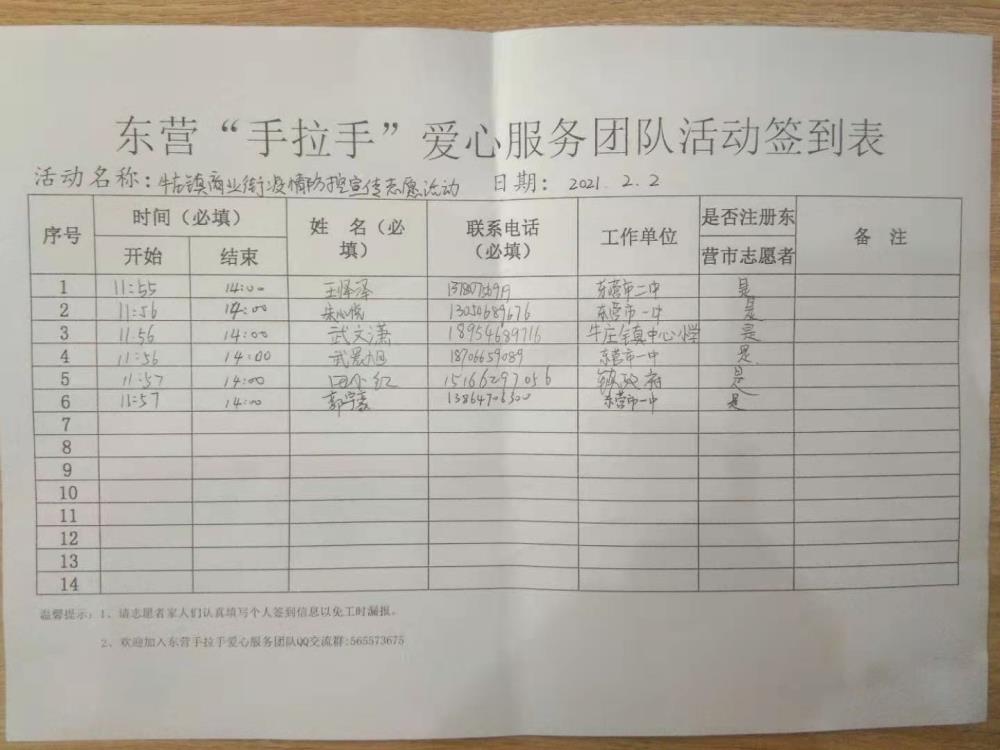 东营“手拉手”爱心服务团队活动签到表
活动名称：牛庄镇商业街疫情防控宣传志愿活动 日期：2021.2.2
序号 时间（必填） 姓 名（必填） 联系电话（必填） 工作单位 是否注册东营市志愿者 备 注
开始 结束
1 11:55 14:00 王怿泽 东营市二中 是
2 11:56 14:00 13054689676 东营市一中 是
3 11:56 14:00 武文潇 18954689716 牛庄镇中心小学 是
4 11:56 14:00 武晨旭 18706659089 东营市一中 是
5 11:57 14:00 15166297056 镇政府 是
6 11:57 14:00 13864706300 东营市一中 是
7
8
9
10
11
12
13
14
温馨提示：1、请志愿者家人们认真填写个人签到信息以免工时漏报。
2、欢迎加入东营手拉手爱心服务团队QQ交流群:565573675